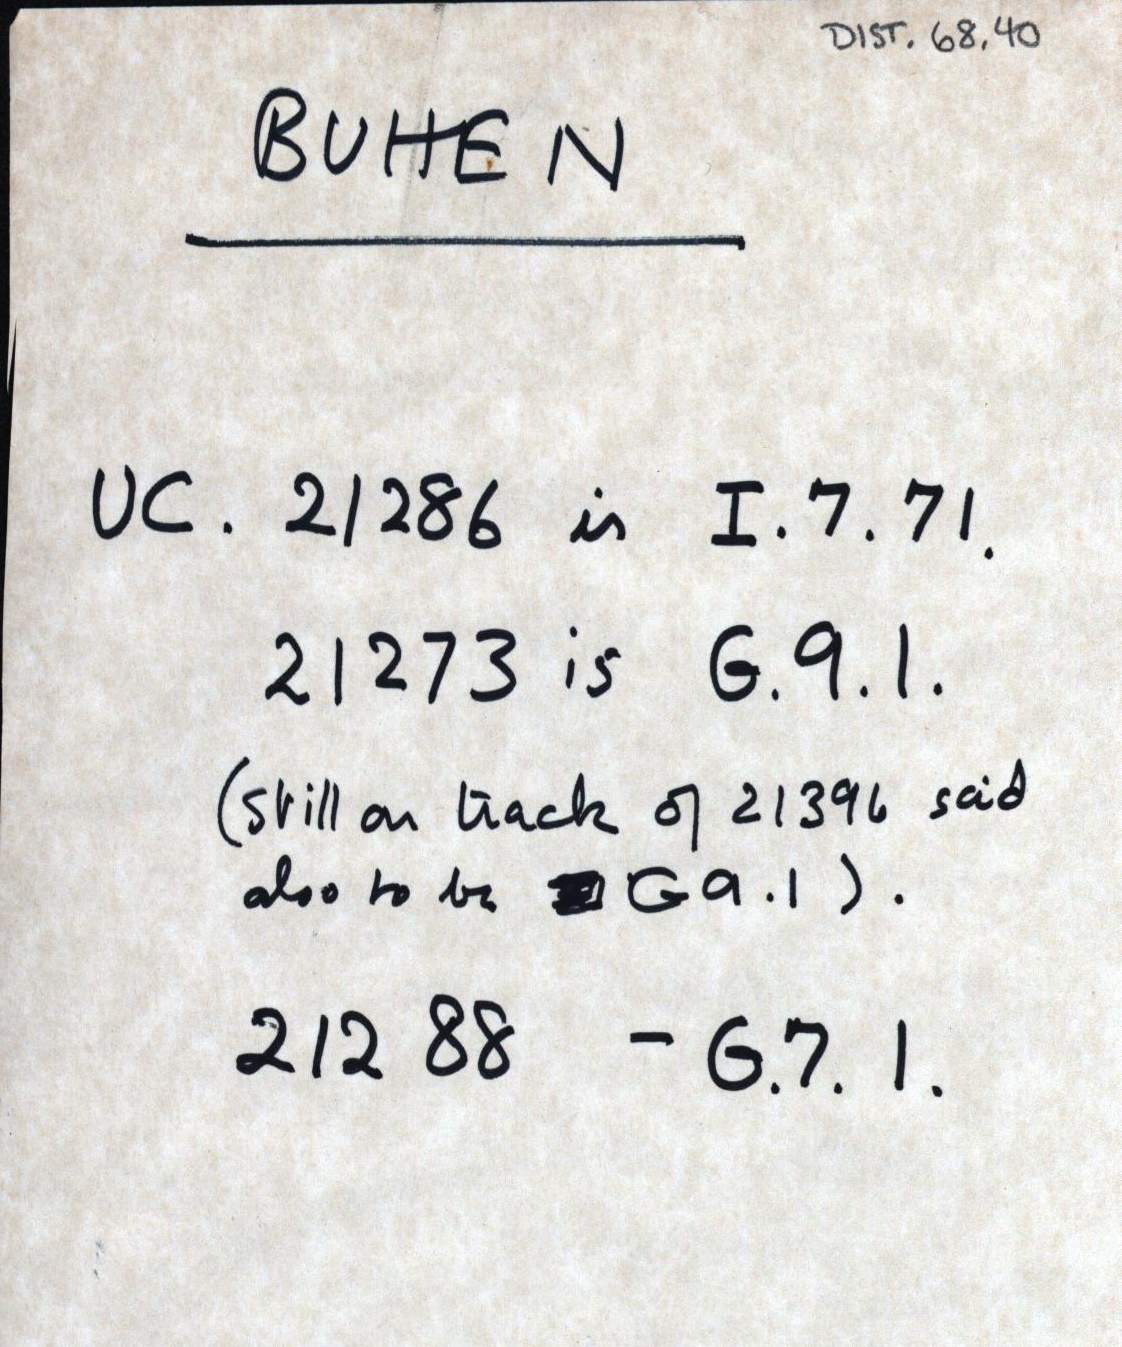 DIST. 68.40
BUHEN
UC. 21286 is I.7.71.
21273 is G.9.1.
(still on track of 21396 said
also to be G9.1).
21288 - G.7.1.